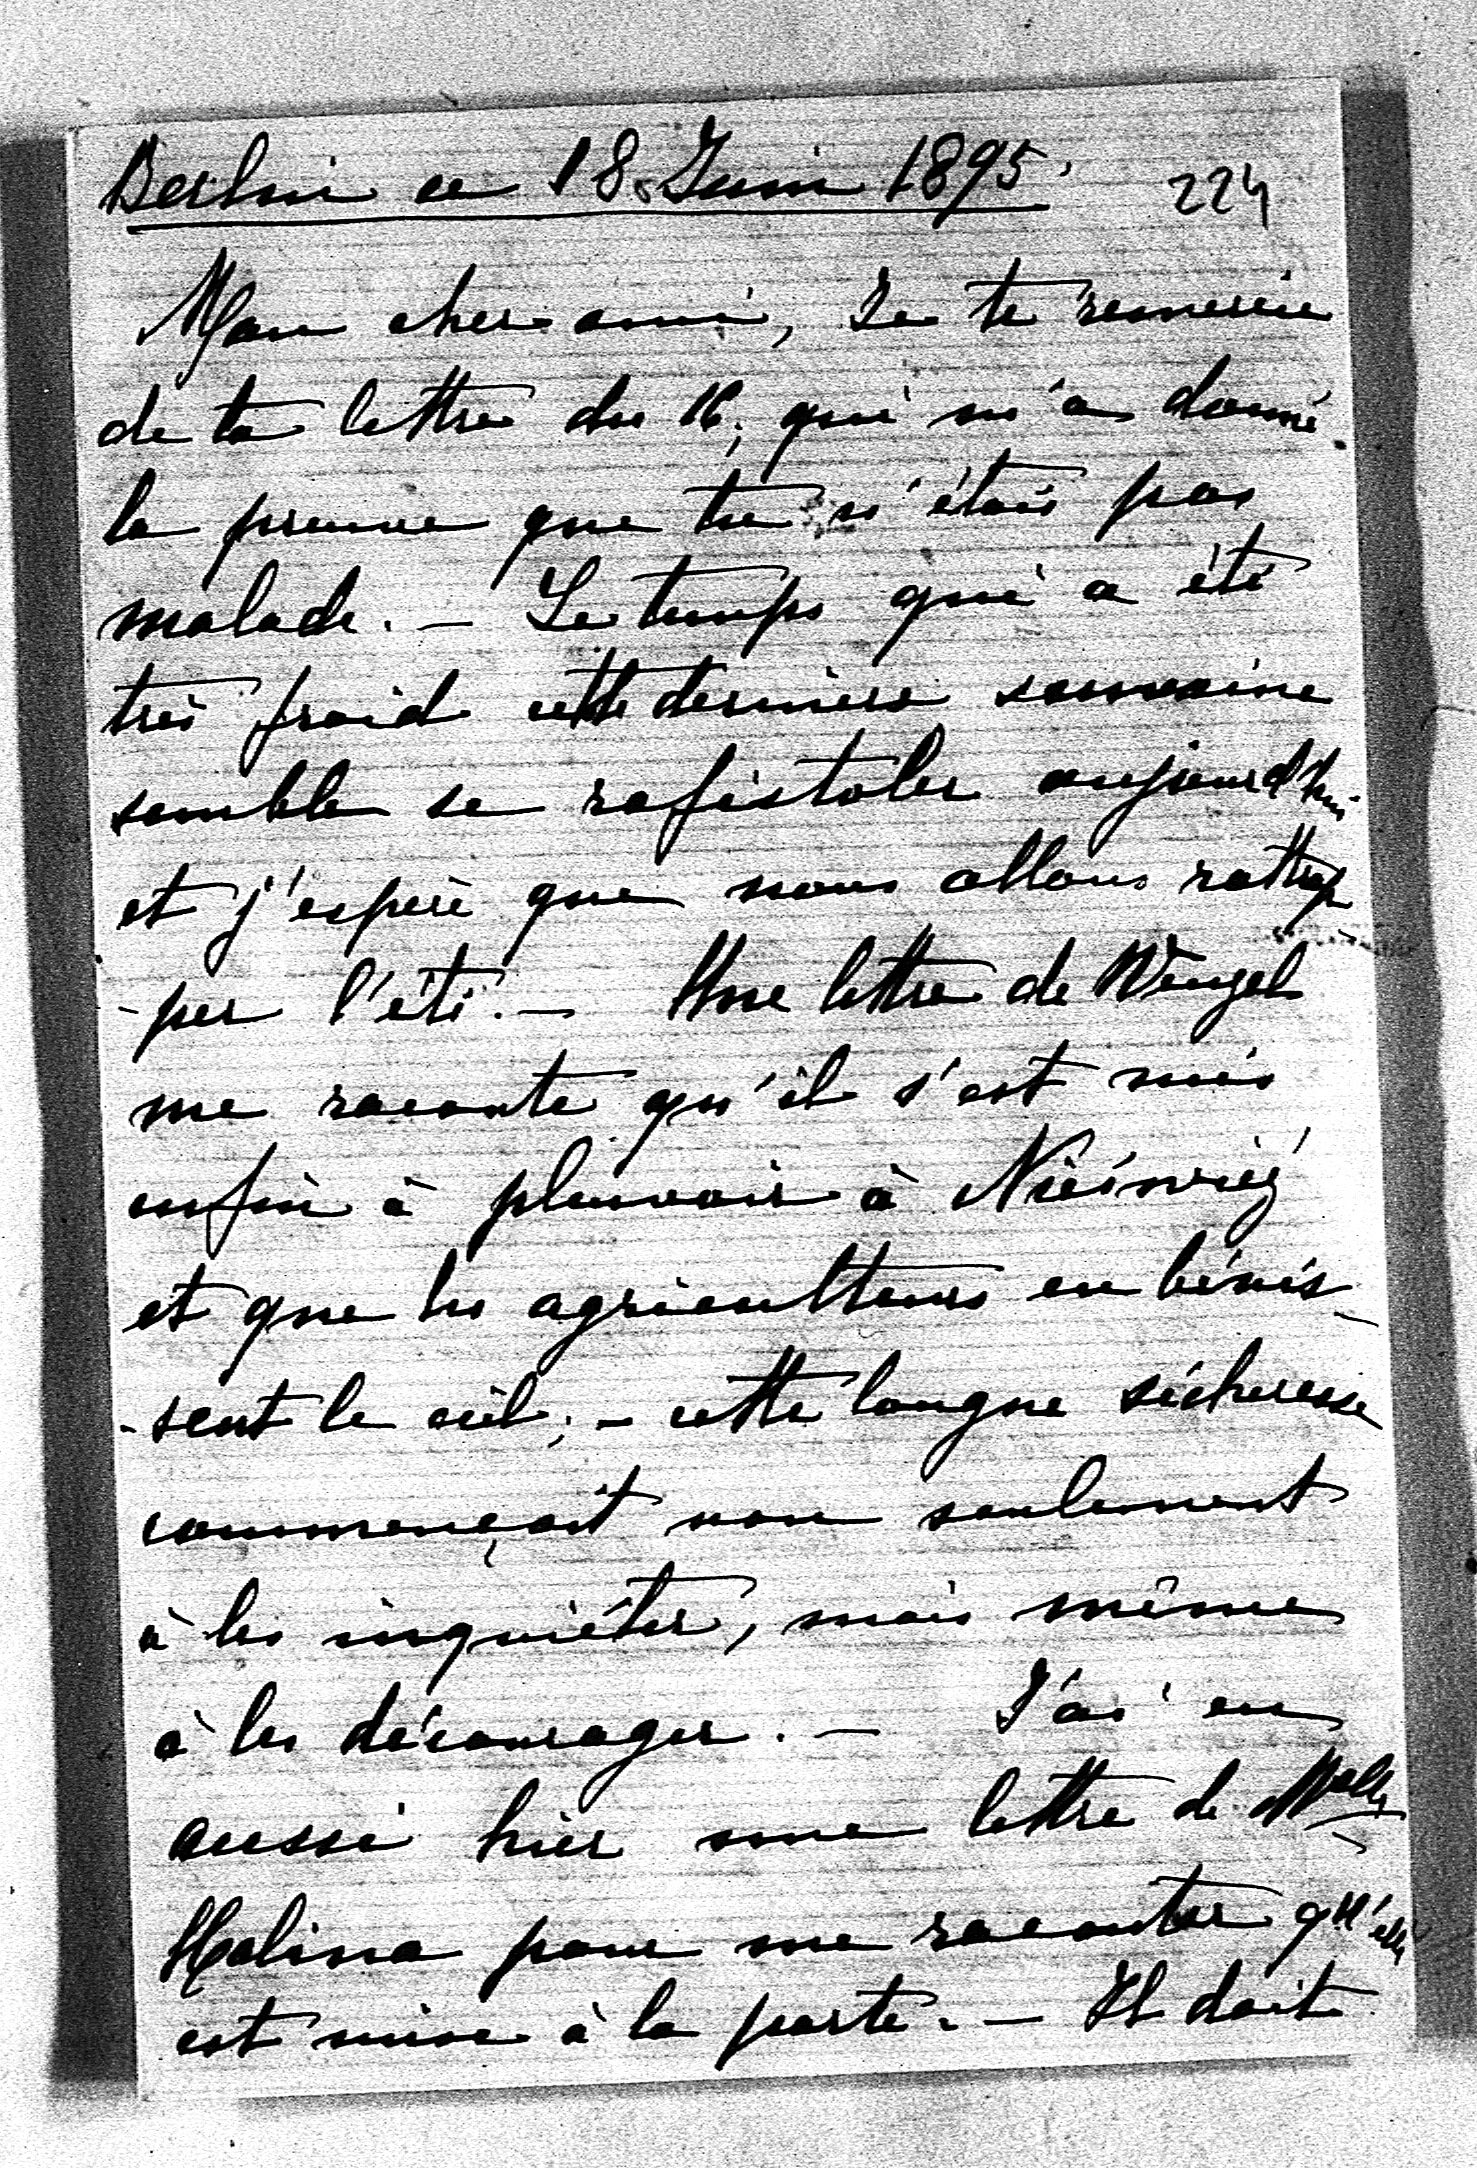 Berlin ce 18. Juin 1895.
224
Mon cher ami, Je te remercie
de ta lettre du 16, qui m'a donné
la preuve que tu n'étais pas
malade. — Le temps qui a été
très froid cette dernière semaine
semble se rafistoler aujourd'hui
et j'espère que nous allons rattra
-per l'été. — Une lettre de Wenzel
me raconte qu'il s'est mis
enfin à pleuvoir à Nieśwież
et que les agriculteurs en bénis-
-sent le ciel; — cette longue sécheresse
commençait non seulement
à les inquiéter, mais même
à les décourager. — J'ai eu
aussi hier une lettre de Melle
Halina pour me raconter qu'elle
est mise à la porte. — Il doit